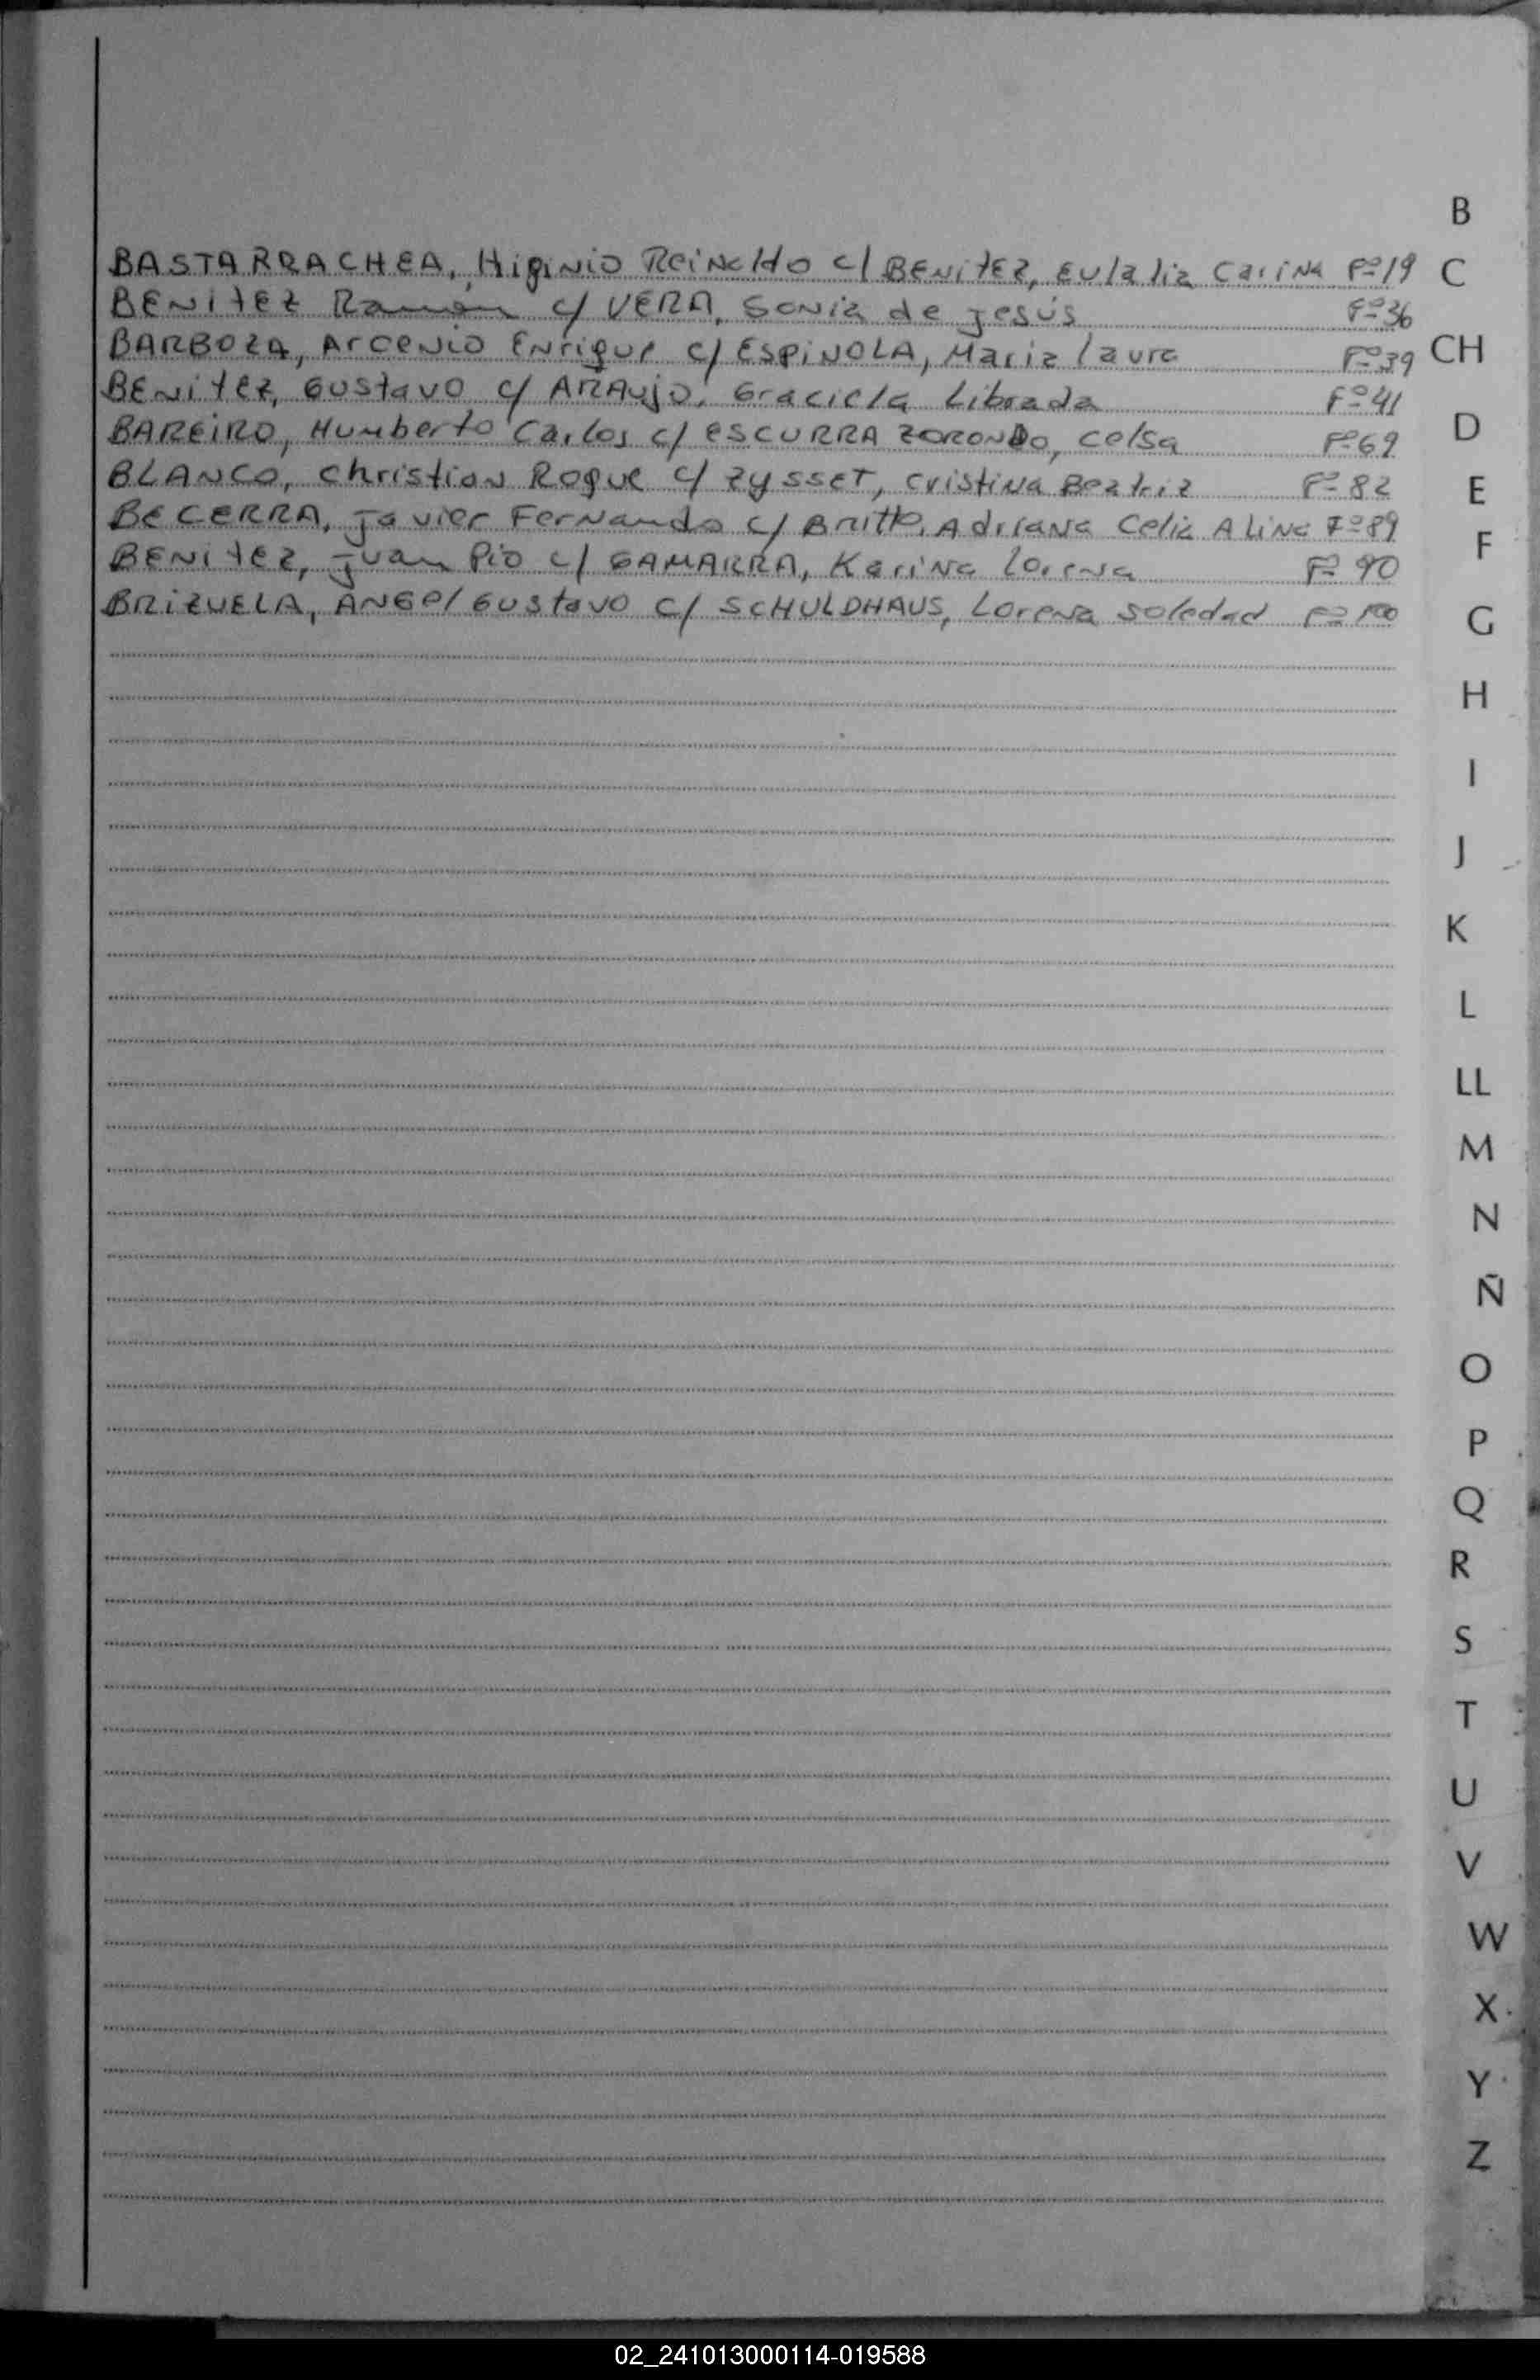 B
BASTARRACHEA, Higinio Reinaldo c/ BENITEZ, Eulalia Carina Fº 19
C
BENITEZ Ramon c/ VERA, Sonia de Jesús Fº 36
BARBOZA, Arcenio Enrique c/ ESPINOLA, Maria Laura Fº 39
CH
BENITEZ, Gustavo c/ ARAUJO, Graciela Librada Fº 41
BAREIRO, Humberto Carlos c/ ESCURRA ZORONDO, Celsa Fº 69
D
BLANCO, Christian Roque c/ ZYSSET, Cristina Beatriz Fº 82
E
BECERRA, Javier Fernando c/ Britto, Adriana Celia Alina Fº 89
F
BENITEZ, Juan Pio c/ GAMARRA, Karina Lorena Fº 90
BRIZUELA, Angel Gustavo c/ SCHULDHAUS, Lorena Soledad Fº 100
G
H
I
J
K
L
LL
M
N
Ñ
O
P
Q
R
S
T
U
V
W
X
Y
Z
02_241013000114-019588